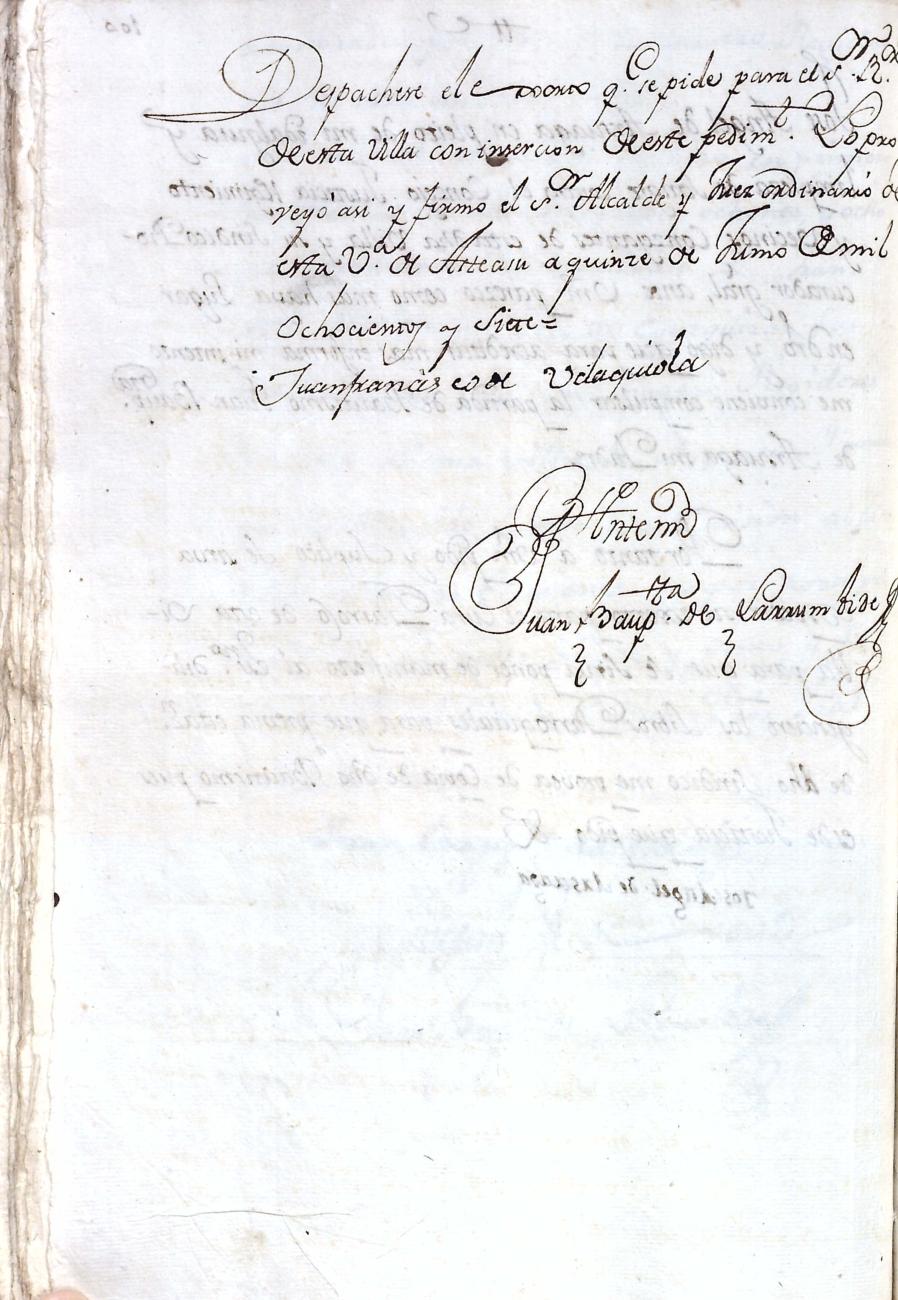 Despachese el exorto q.e se pide para el s.r R.r
de esta Villa con insercion de este pedim.to Lo pro
veyó asi y firmo el s.r Alcalde y Juez ordinario de
esta V.a de Asteasu a quinze de Junio de mil
Ochocientos y Siete =
Juan francisco de Velaquiola
Ante mi
Juan Baup.ta de Larrumbide